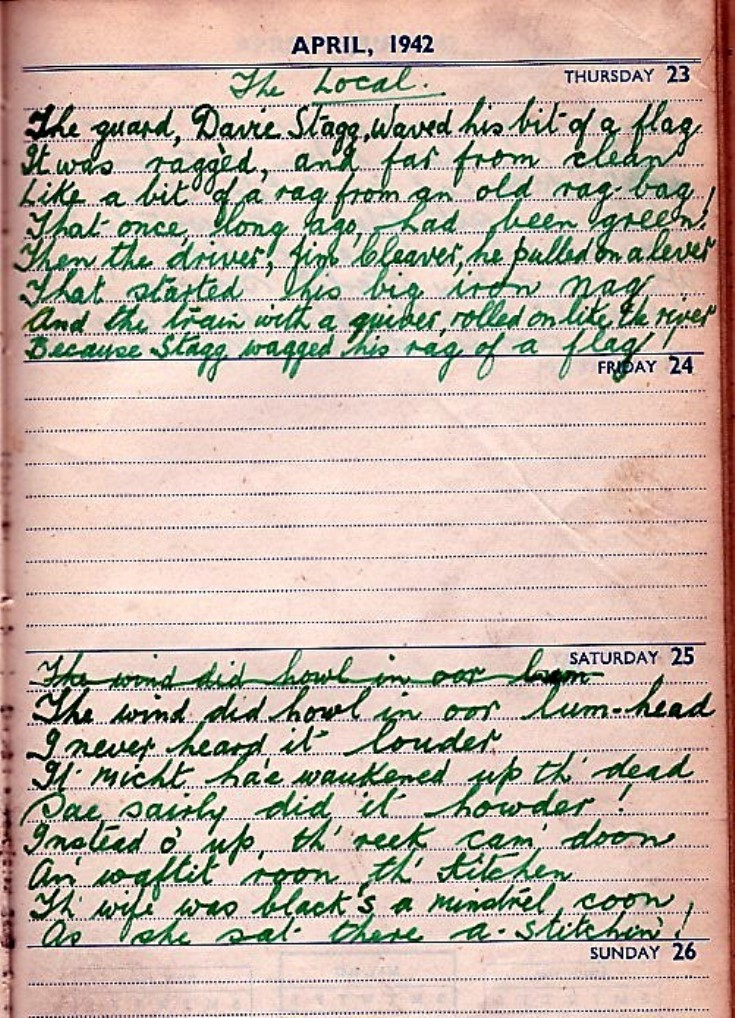 APRIL, 1942
THURSDAY 23
The Local.
The guard, Davie Stagg, waved his bit of a flag
It was ragged, and far from clean
Like a bit of a rag from an old rag-bag,
That once, long ago, had been green!
Then the driver, Jim Cleaver, he pulled on a lever
That started his big iron nag
And the train with a quiver, rolled on like the river
Because Stagg wagged his rag of a flag!!
FRIDAY 24
SATURDAY 25
The wind did howl in oor lum
The wind did howl in oor lum-head
I never heard it louder
It micht hae waukened up th' dead
Sae sairly did it howder!
Instead o' up, th' reek cam' doon
An' waftit roon th' kitchen
Th' wife was black's a minstrel coon
As she sat there a-stitchin'!
SUNDAY 26